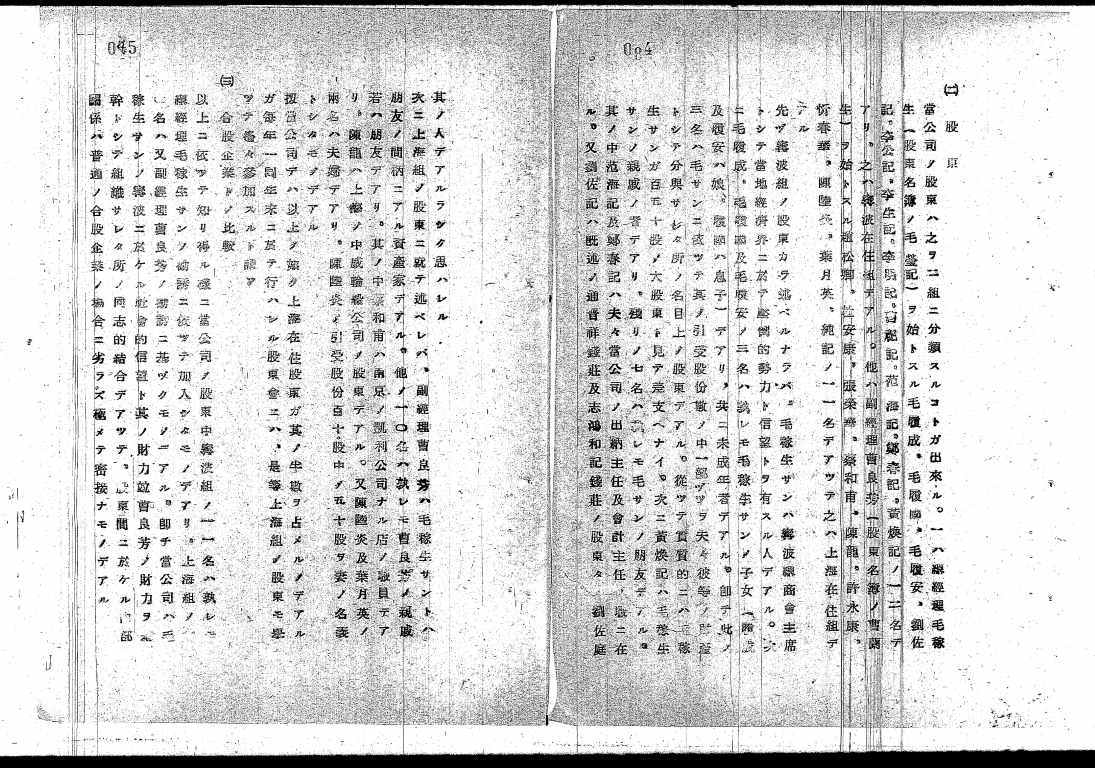 084
㈡ 股東
當公司ノ股東ハ之ヲ二組ニ分類スルコトガ出來ル。一ハ總經理毛稼
生(股東名簿ノ毛鎣記)ヲ始トスル毛履成。毛履 。毛履安。劉佐
記。李公記。李生記。李 記。 記。范 海記。鄭春記。黃煥記ノ一二名デ
アリ。之ハ寧波在住組デアル。他ハ副經理曹良芳(股東名簿ノ曹蘭
生)ヲ始トスル趙松卿。 安康。張榮 。蔡和甫。陳龍。許永康。
忻春華。陳陸炎。葉月英。純記ノ一一名デアツテ之ハ上海在住組デ
アル
先ヅ寧波組ノ股東カラ述ベルナラバ。毛稼生サンハ寧波總商會主席
トシテ當地經濟界ニ於テ壓倒的勢力ト信望トヲ有スル人デアル。次
ニ毛履成。毛履 及毛履安ノ三名ハ孰レモ毛稼生サンノ子女(履成
及履安ハ娘。履 ハ息子)デアリ。共ニ未成年者デアル。卽チ此ノ
三名ハ毛サンニ依ツテ其ノ引受股份數ノ中一部ヅツヲ夫々彼等ノ財產
トシテ分與サレタ所ノ名目上ノ股東デアル。從ツテ實質的ニハ毛稼
生サンガ百五十股ノ大股東ト見テ差支ヘナイ。次ニ黃煥記ハ毛稼生
サンノ親戚ノ者デアリ。殘リノ七名ハ孰レモ毛サンノ朋友デアル。
其ノ中范海記及鄭春記ハ夫々當公司ノ出納主任及會計主任ノ職ニ在
ル。又劉佐記ハ旣述ノ通晋祥錢莊及志鴻和記錢莊ノ股東タ 劉佐庭
085
其ノ人デアルラシク思ハレル
次ニ上海組ノ股東ニ就テ述ベレバ。副經理曹良芳ハ毛稼生サントハ
朋友ノ間柄ニアル資產家デアル。他ノ一〇名ハ孰レモ曹良芳ノ親戚
若ハ朋友デアリ。其ノ中蔡和甫ハ南京ノ凱利公司ナル店ノ職員デア
リ。陳龍ハ上海ノ中威輪船公司ノ股東デアル。又陳陸炎及葉月英ノ
兩名ハ夫婦デアリ。陳陸炎ノ引受股份百十股中ノ五十股ヲ妻ノ名義
トシタモノデアル
扨當公司デハ以上ノ如ク上海在住股東ガ其ノ半數ヲ占メルノデアル
ガ每年一回年末ニ於テ行ハレル股東會ニハ。是等上海組ノ股東モ舉
ツテ 々參加スルト謂フ
㈢ 合股企業トノ比較
以上ニ依ツテ知リ得ル樣ニ當公司ノ股東中寧波組ノ一一名ハ孰レモ
總經理毛稼生サンノ勸誘ニ依ツテ加入シタモノデアリ。上海組ノ一
〇名ハ又副經理曹良芳ノ勸誘ニ基ヅクモノデアル。卽チ當公司ハ毛
稼生サンノ寧波ニ於ケル社會的信望ト其ノ財力竝曹良芳ノ財力ヲ根
幹トシテ組織サレタ所ノ同志的結合デアツテ。股東間ニ於ケル 部
關係ハ普通ノ合股企業ノ場合ニ劣ラズ極メテ密接ナモノデアル